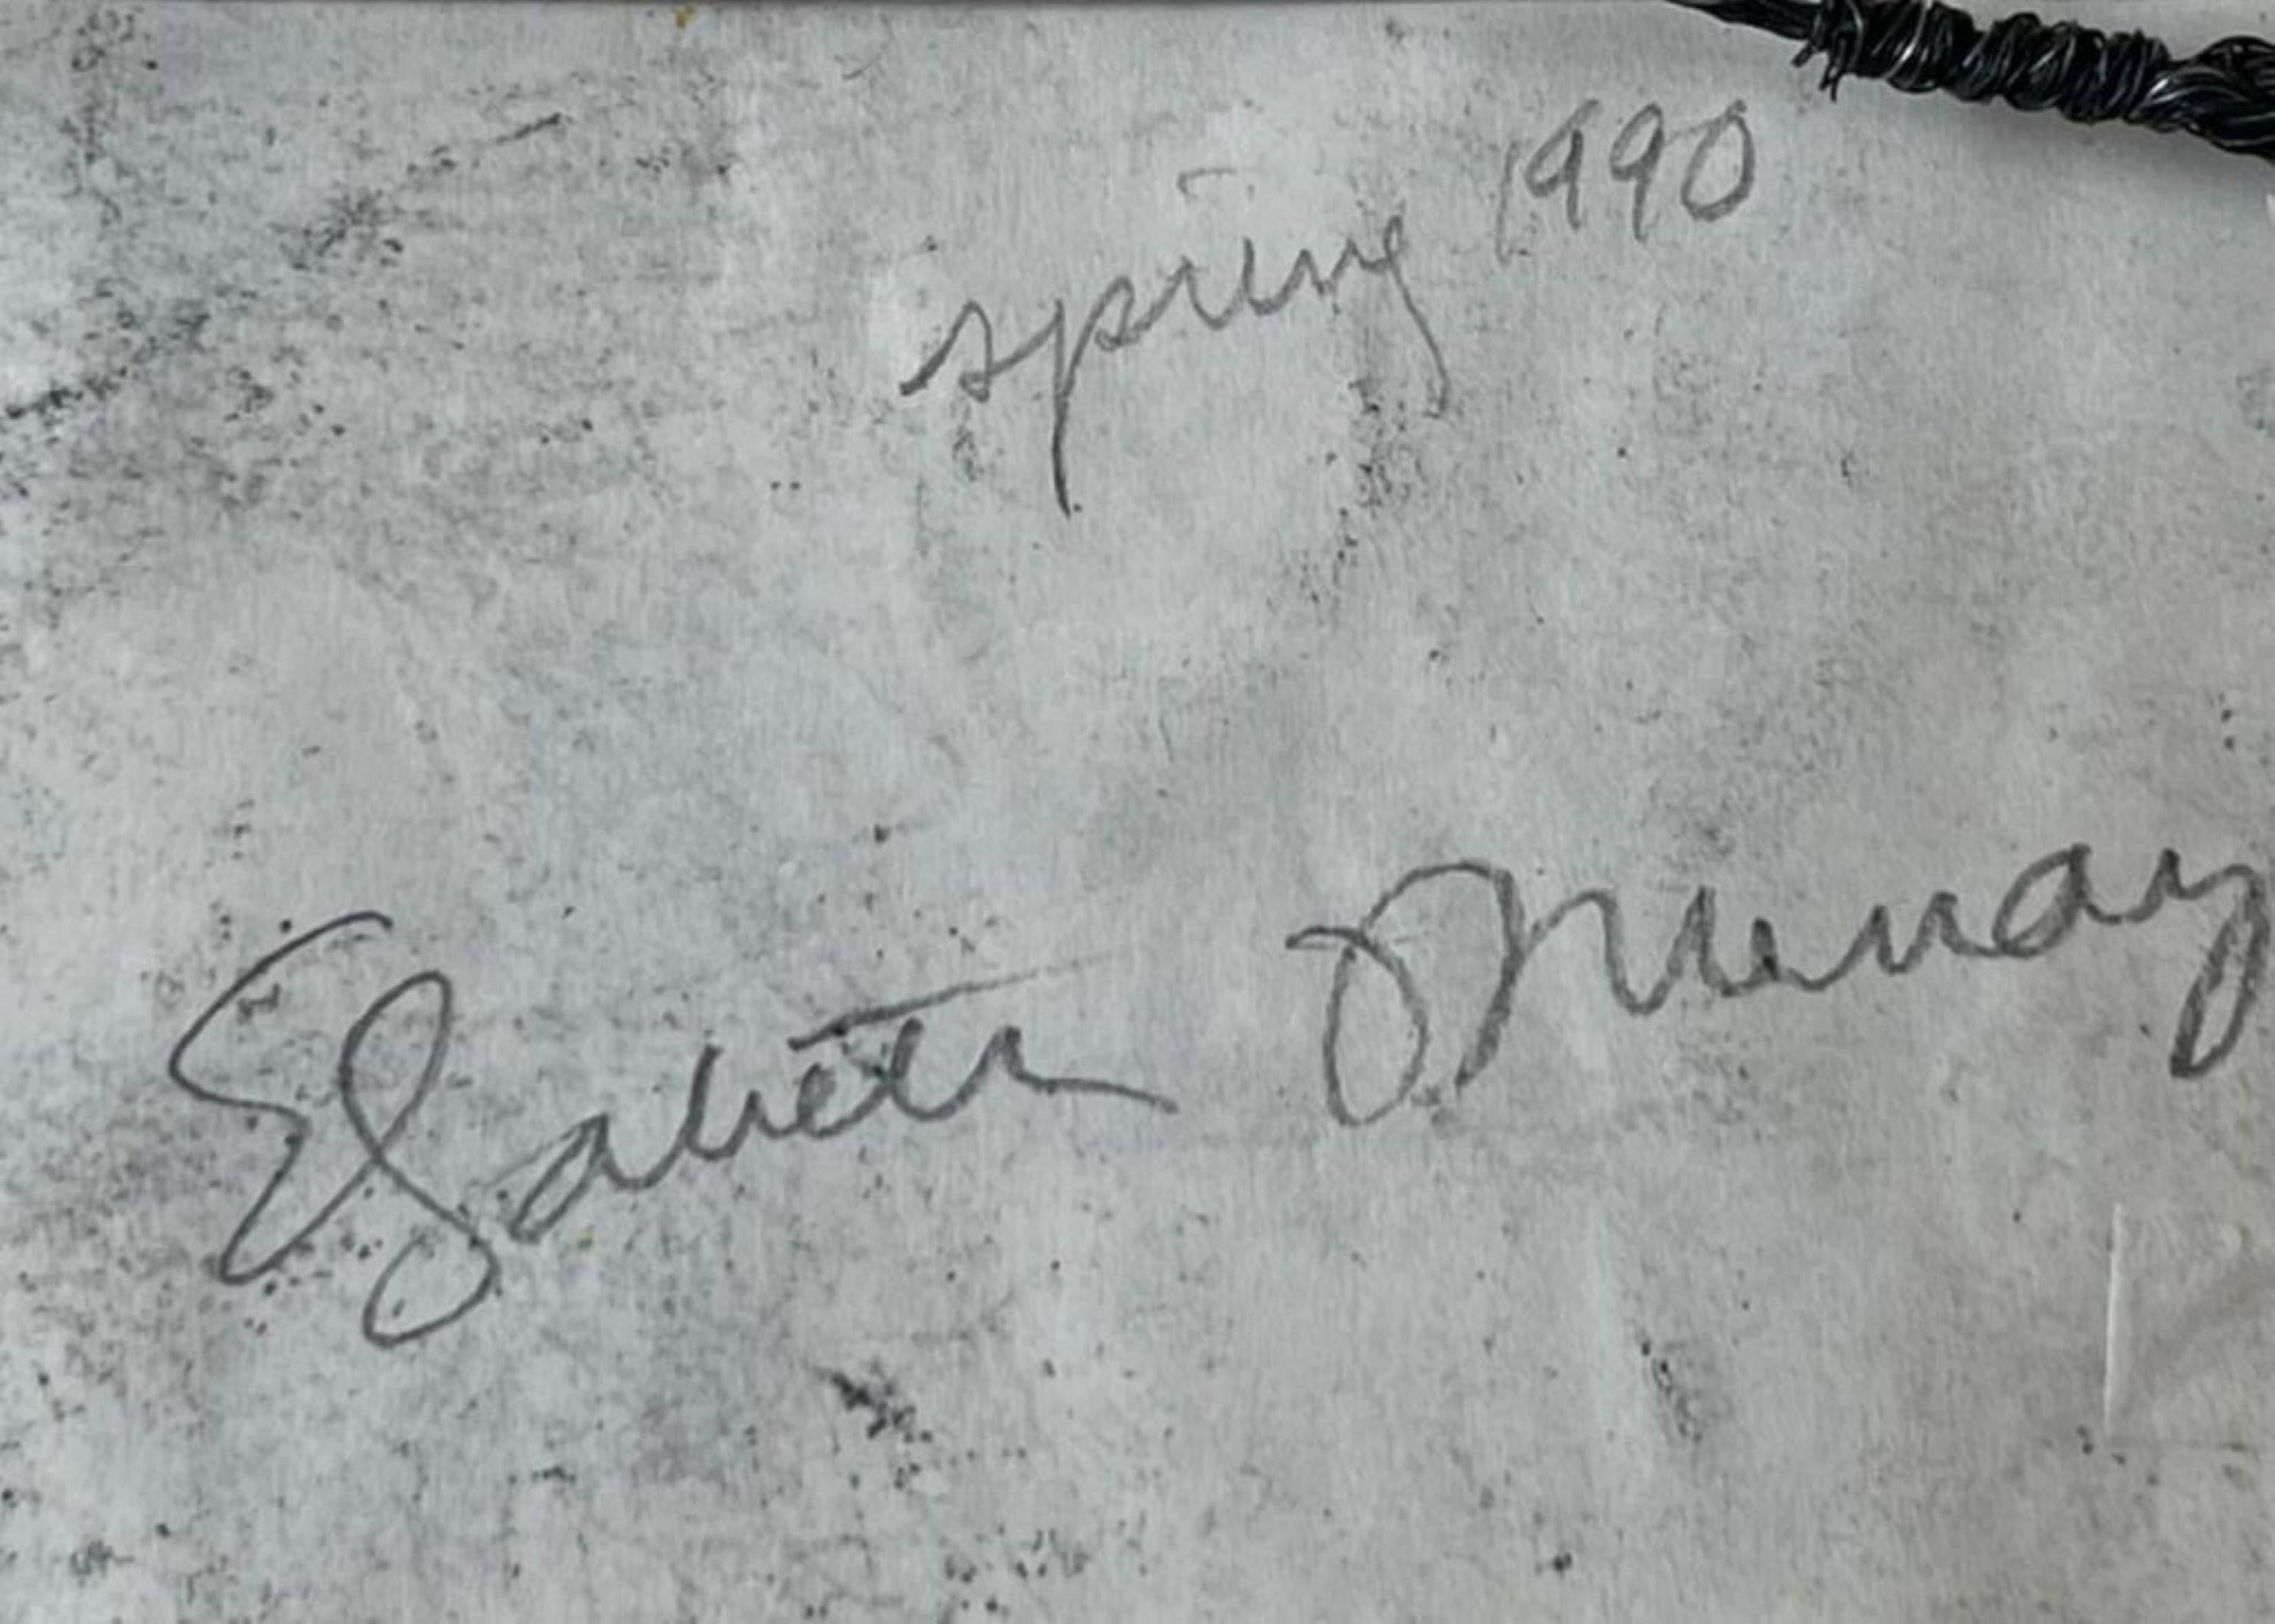 spring 1990
Elizabeth Murray